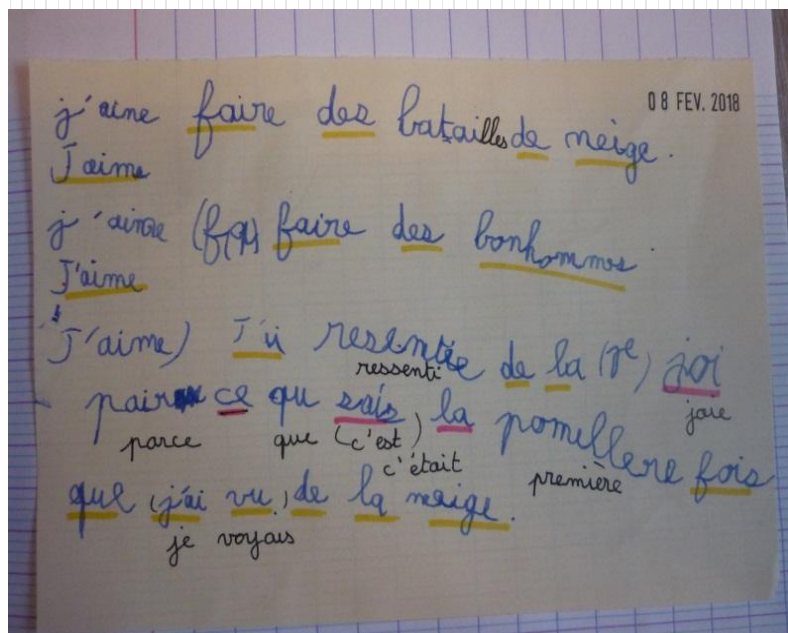 08 FEV. 2018
j'aine faire des batailles de neige.
J'aime
j'aime faire des bonhommes
J'aime
J'aime) J'ai resentie de la (re) joi
ressenti
joie
pair ce qu sais la pomillere fois
parce que (c'est)
c'était première
que (j'ai vu) de la neige.
je voyais